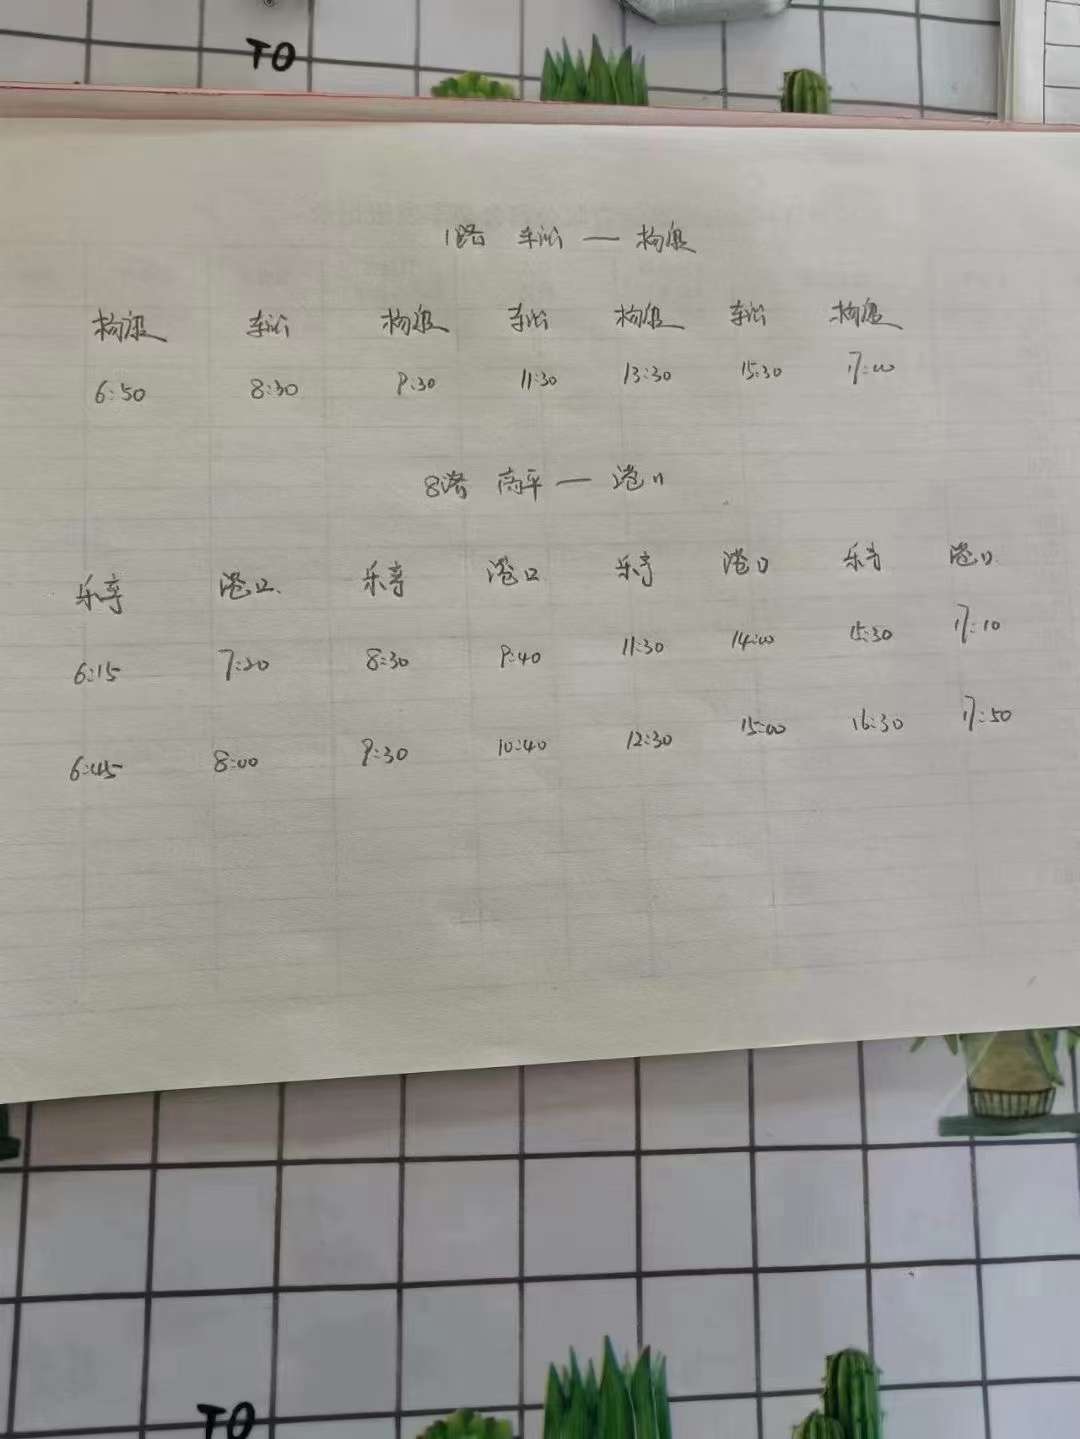 TO
1路 车站 — 杨浪
杨浪 车站 杨浪 车站 杨浪 车站 杨浪
6:50 8:30 9:30 11:30 13:30 15:30 17:00
8路 高平 — 港口
乐亭 港口 乐亭 港口 乐亭 港口 乐亭 港口
6:15 7:20 8:30 9:40 11:30 14:00 15:30 17:10
6:45 8:00 9:30 10:40 12:30 15:00 16:30 17:50
TO